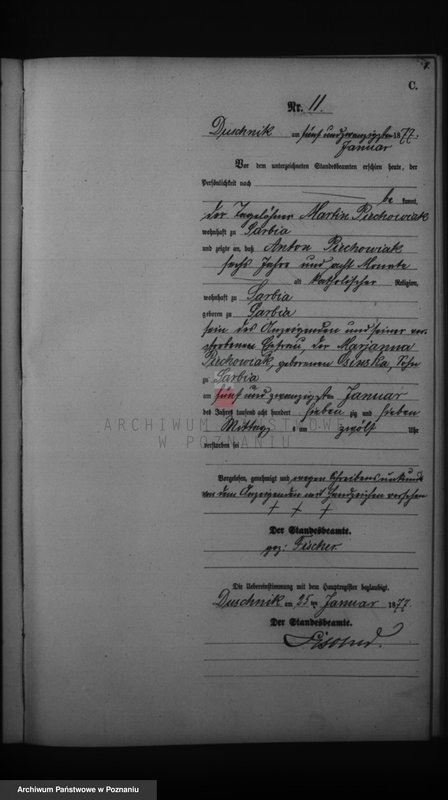 C.
Nr. 11.
Duschnik am fünf und zwanzigsten 1877.
Januar
Vor dem unterzeichneten Standesbeamten erschien heute, der
Persönlichkeit nach
be kannt,
der Tagelöhner Martin Pirchowiak
wohnhaft zu Sarbia
und zeigte an, daß Anton Pirchowiak
sechs Jahre und acht Monate
alt katholischer Religion,
wohnhaft zu Sarbia
geboren zu Sarbia
sein des Anzeigenden und seiner ver-
storbenen Ehefrau, der Marjanna
Pirchowiak, geborenen Sohn
zu Sarbia
am fünf und zwanzigsten Januar
des Jahres tausend acht hundert sieben zig und sieben
Mittag s um zwölf Uhr
verstorben sei
ARCHIWUM PAŃSTWOWE
W POZNANIU
Vorgelesen, genehmigt und wegen Schreibensunkunde
von dem Anzeigenden mit Handzeichen versehen
+ + +
Der Standesbeamte.
gez: Fischer.
Die Uebereinstimmung mit dem Hauptregister beglaubigt.
Duschnik am 25ten Januar 1877.
Der Standesbeamte.
Archiwum Państwowe w Poznaniu